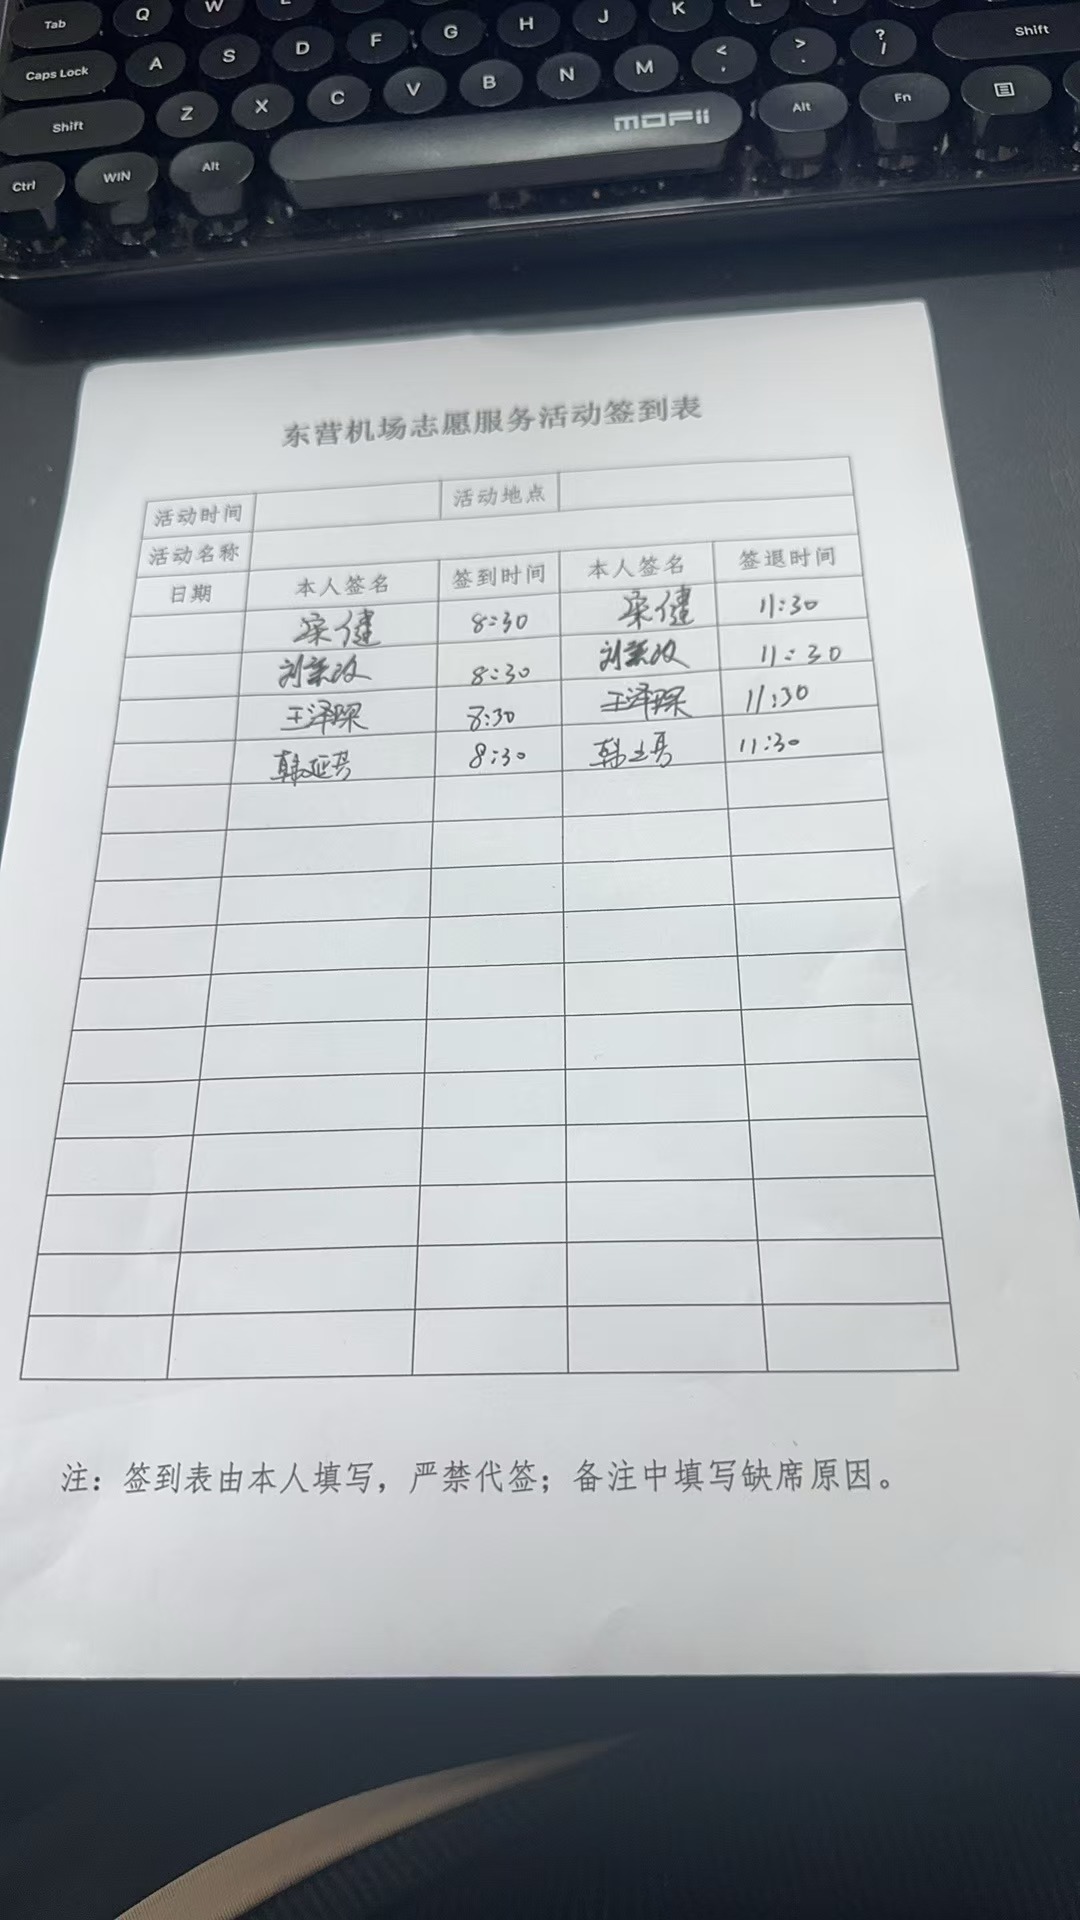 Tab Q W L G H J K L
Caps Lock A S D F < , > . ? / Shift
Shift Z X C V B N M Alt Fn
Ctrl WIN Alt MOFii
东营机场志愿服务活动签到表
活动时间 活动地点
活动名称
日期 本人签名 签到时间 本人签名 签退时间
宋健 8:30 宋健 11:30
刘 8:30 刘 11:30
王泽琛 8:30 王泽琛 11:30
韩延 8:30 韩 11:30
注：签到表由本人填写，严禁代签；备注中填写缺席原因。